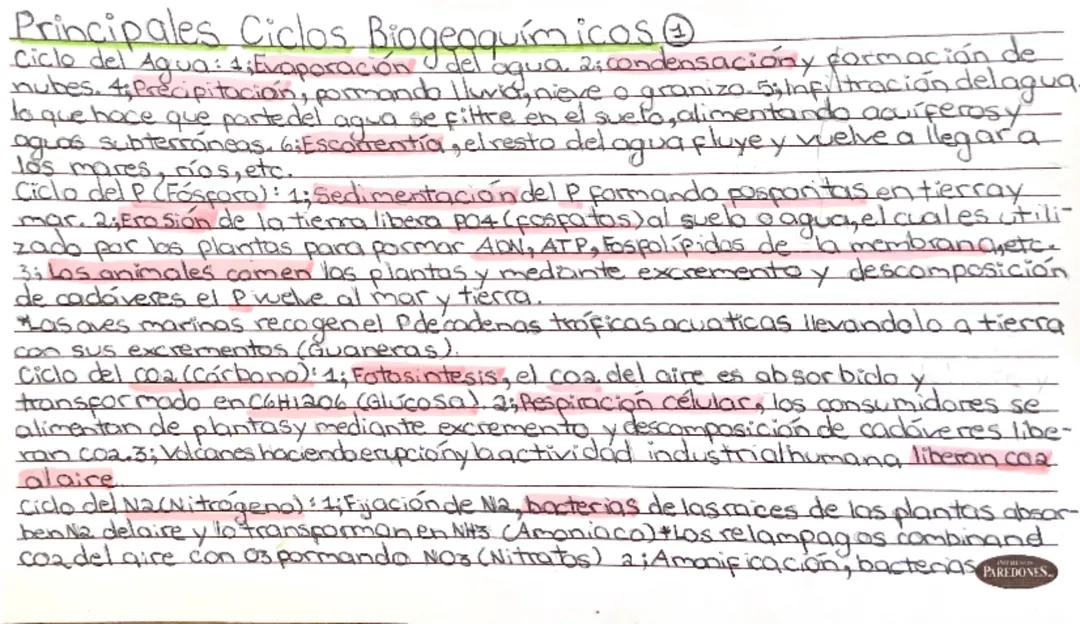 Principales Ciclos Biogeoquímicos ①
Ciclo del Agua: 1; Evaporación del agua. 2; condensación y formación de
nubes. 4; Precipitación, formando lluvia, nieve o granizo. 5; Infiltración del agua,
lo que hace que parte del agua se filtre en el suelo, alimentando acuíferos y
aguas subterráneas. 6; Escorrentía, el resto del agua fluye y vuelve a llegar a
los mares, ríos, etc.
Ciclo del P (Fósforo): 1; Sedimentación del P formando fosforitas en tierra y
mar. 2; Erosión de la tierra libera PO4 (fosfatos) al suelo o agua, el cual es utili-
zado por las plantas para formar ADN, ATP, Fosfolípidos de la membrana, etc.
3; Los animales comen las plantas y mediante excremento y descomposición
de cadáveres el P vuelve al mar y tierra.
*Las aves marinas recogen el P de cadenas tróficas acuaticas llevandolo a tierra
con sus excrementos (Guaneras).
Ciclo del CO2 (Cárbono): 1; Fotosintesis, el CO2 del aire es absorbido y
transformado en C6H12O6 (Glucosa). 2; Respiración célular, los consumidores se
alimentan de plantas y mediante excremento y descomposición de cadáveres libe-
ran CO2. 3; Volcanes haciendo erupción y la actividad industrial humana liberan CO2
al aire
Ciclo del N2 (Nitrógeno): 1; Fijación de N2, bacterias de las raices de las plantas absor-
ben N2 del aire y lo transforman en NH3 (Amoniaco) *Los relampagos combinand
CO2 del aire con O3 formando NO3 (Nitratos) 2; Amonificación, bacterias
PAREDONES